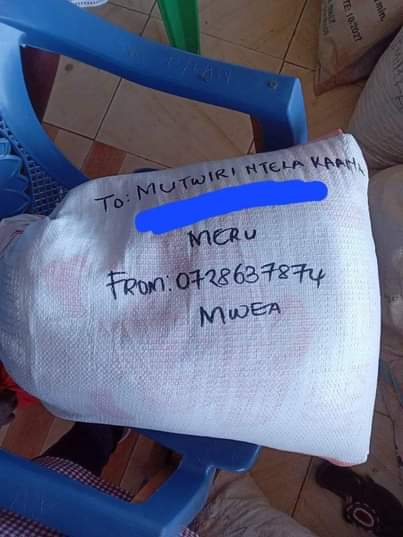 TO: MUTWIRI NTELA KAANA
MERU
FROM: 0728637874
MWEA
TE: 10/2027